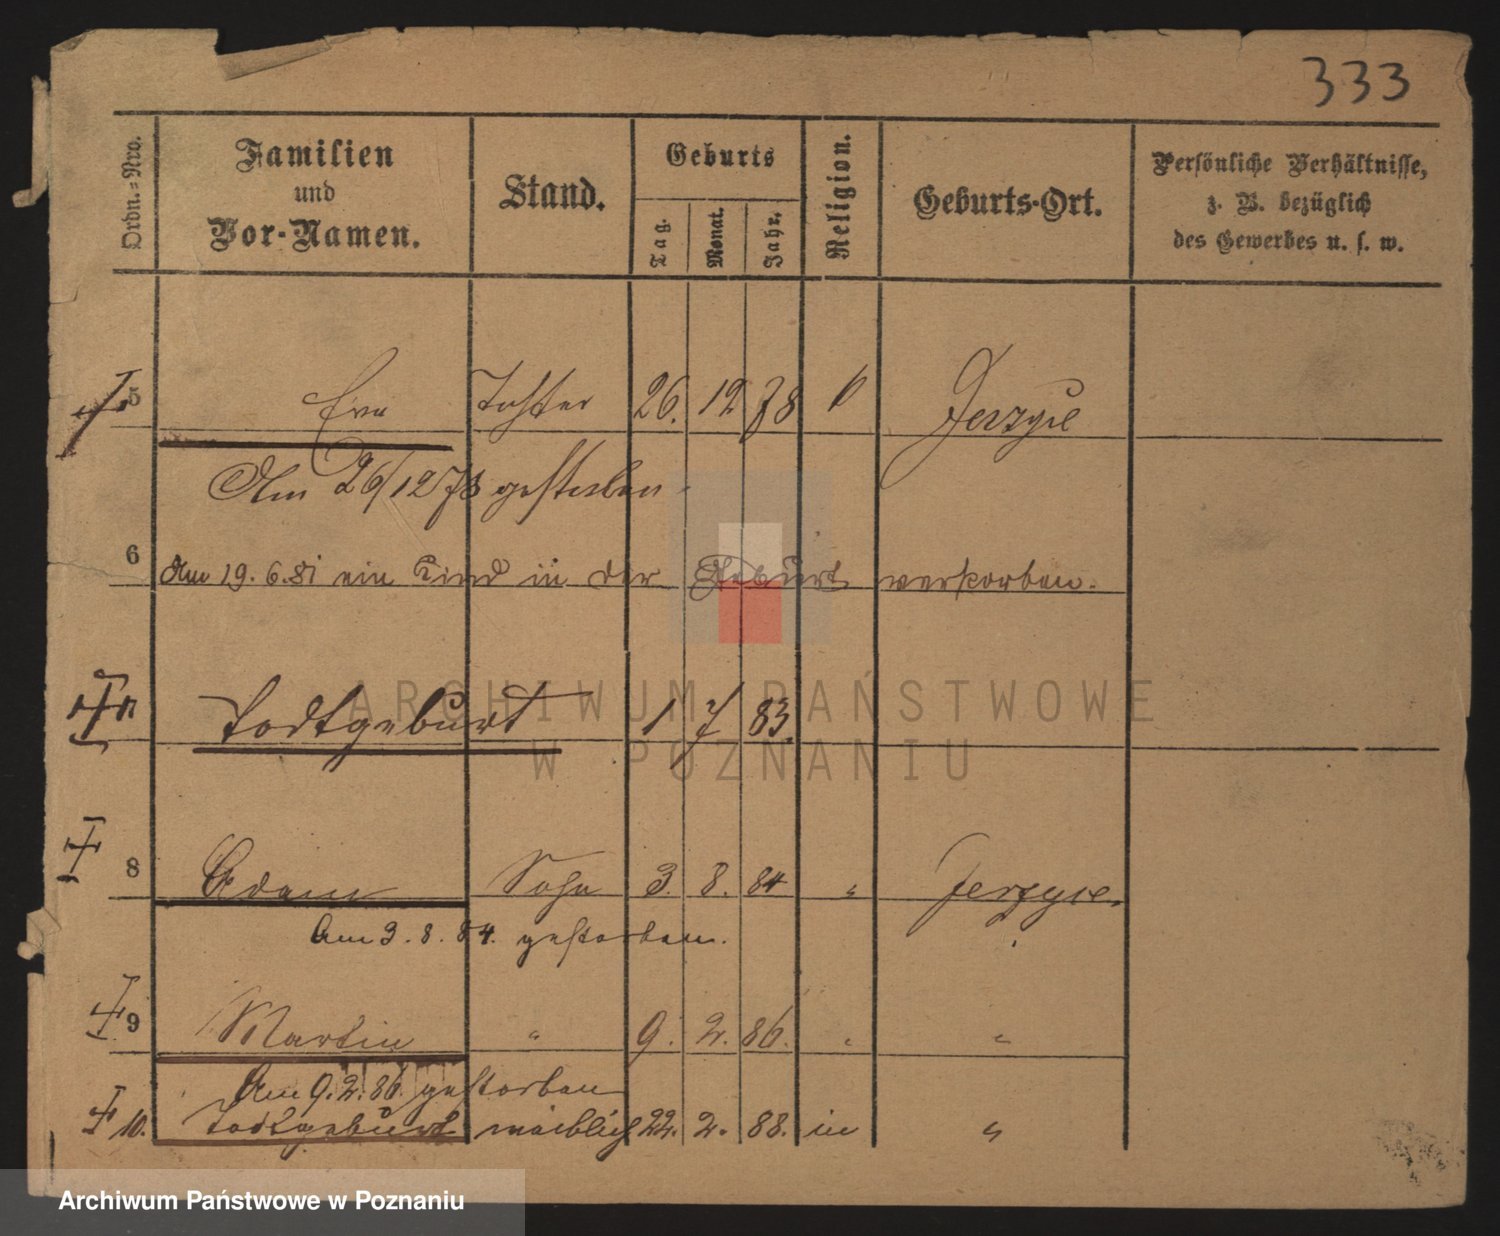 333
Ordn.=Nro.
Familien und Vor-Namen.
Stand.
Geburts
Tag.
Monat.
Jahr.
Religion.
Geburts-Ort.
Persönliche Verhältnisse,
z. B. bezüglich
des Gewerbes u. s. w.
5 Eva Tochter 26. 12 78 Jerzyce
Am 26/12 78 gestorben
6 Am 19. 6. 81 ein Kind in der Geburt verstorben.
Todtgeburt 1 7 83.
8 Adam Sohn 3. 8. 84 " Jerzyce.
Am 3. 8. 84. gestorben.
9 Martin " 9. 2. 86. " "
Am 9. 2. 86. gestorben
10. Todtgeburt weiblich 22. 2. 88. in "
ARCHIWUM PAŃSTWOWE
W POZNANIU
Archiwum Państwowe w Poznaniu